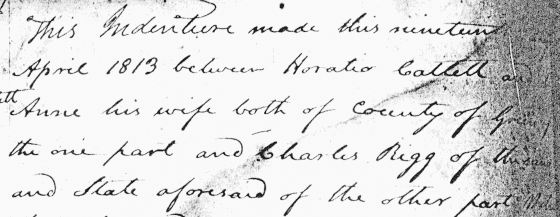 This Indenture made this nineteen
April 1813 between Horatio Catlett and
Anne his wife both of County of
the one part and Charles Rigg of the
and State aforesaid of the other part